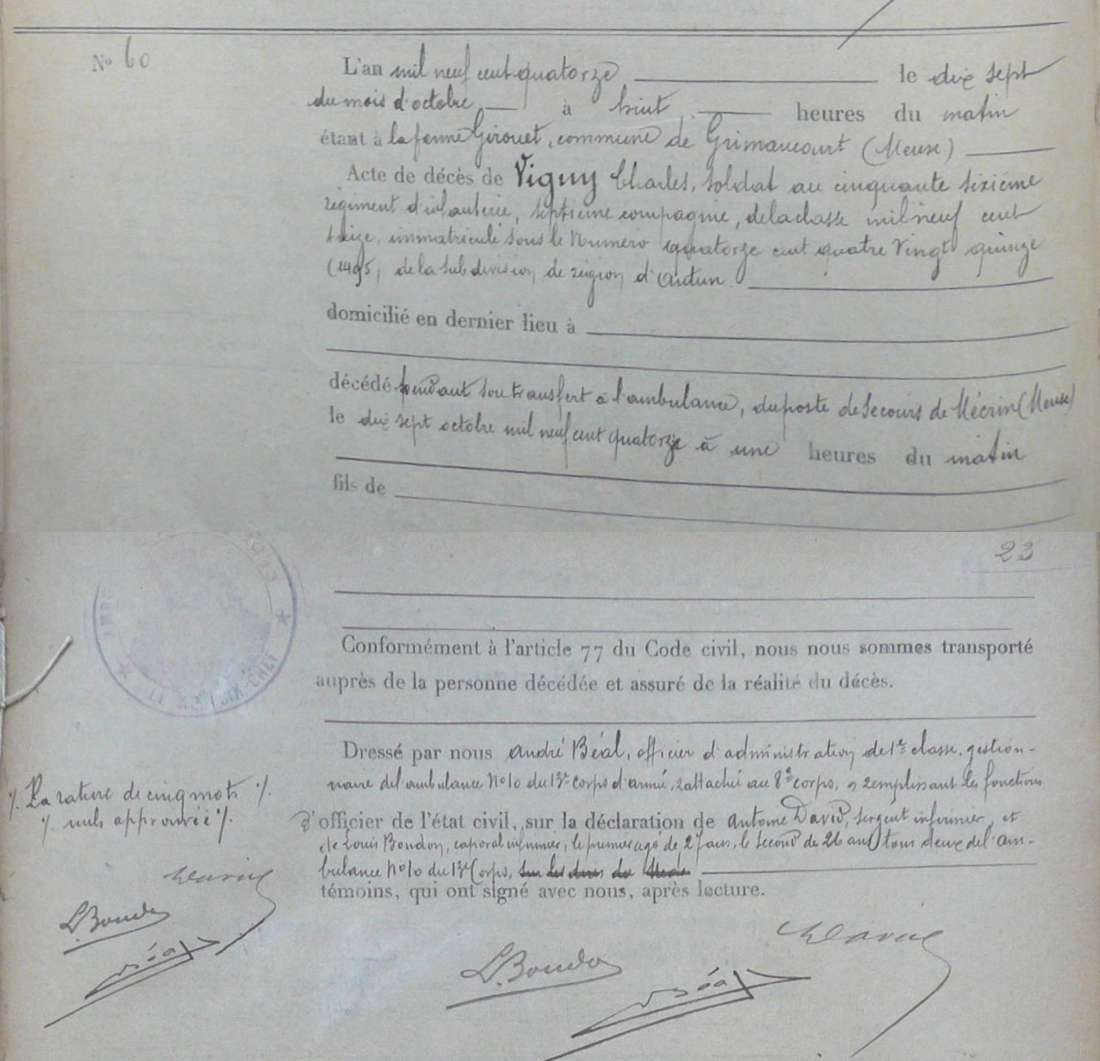 N° 60
L'an mil neuf cent quatorze le dix sept
du mois d'octobre à huit heures du matin
étant à la ferme Girouet, commune de Grimaucourt (Meuse)
Acte de décès de Viguy Charles, soldat au cinquante sixième
régiment d'infanterie, septième compagnie, de la classe mil neuf cent
treize, immatriculé sous le numéro quatorze cent quatre vingt quinze
(1495, de la subdivision de région d'Autun.
domicilié en dernier lieu à
décédé pendant son transfert à l'ambulance, du poste de secours de Mécrin (Meuse)
le dix sept octobre mil neuf cent quatorze à une heures du matin
fils de
23
Conformément à l'article 77 du Code civil, nous nous sommes transporté
auprès de la personne décédée et assuré de la réalité du décès.
Dressé par nous André Béal, officier d'administration de 1re classe, gestion-
naire de l'ambulance N° 10 du 13e corps d'armée, rattaché au 8e corps, remplissant les fonctions
d'officier de l'état civil, sur la déclaration de Antoine David, sergent infirmier, et
de Louis Boudon, caporal infirmier, le premier agé de 27 ans, le second de 26 ans tous deux de l'am-
bulance N° 10 du 13e Corps,
témoins, qui ont signé avec nous, après lecture.
·/. La rature de cinq mots ·/.
·/. nuls approuvée ·/.
David
L. Boudon
Béal
L. Boudon
Béal
David